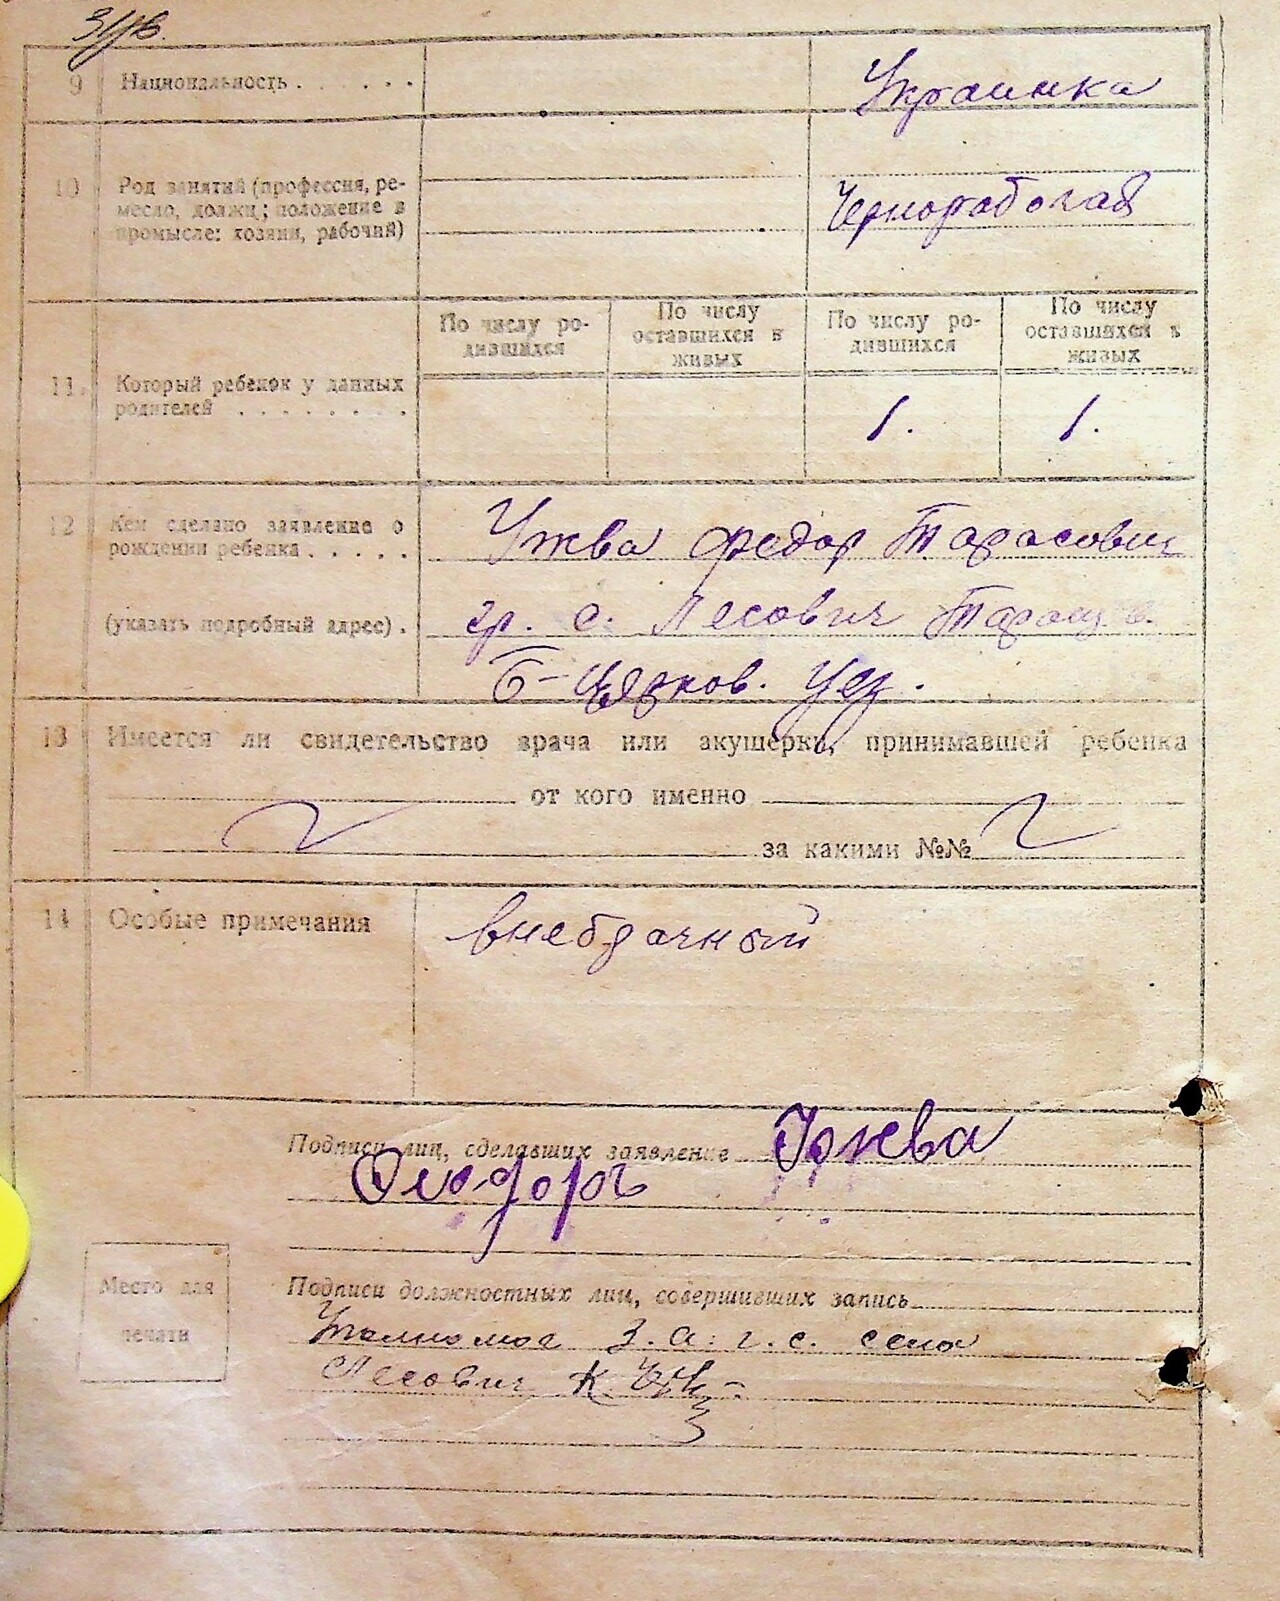 31/в.
9 Национальность . . . . . . Украинка
10 Род занятий (профессия, ре-
месло, должн; положение в
промысле: хозяин, рабочий)
Чернорабочая
По числу ро-
дившихся
По числу
оставшихся в
живых
По числу ро-
дившихся
По числу
оставшихся в
живых
11. Который ребенок у данных
родителей . . . . . . . .
1. 1.
12 Кем сделано заявление о
рождении ребенка . . . . .
(указать подробный адрес) .
Ужва Федор Тарасович
гр. с. Лесович Таращ. в.
Б-Церков. уез.
13 Имеется ли свидетельство врача или акушерки, принимавшей ребенка
от кого именно
за какими №№
14 Особые примечания внебрачный
Подписи лиц, сделавших заявление Ужва
Феодоръ
Место для
печати
Подписи должностных лиц, совершивших запись
З.а.г.с. села
Лесович К.